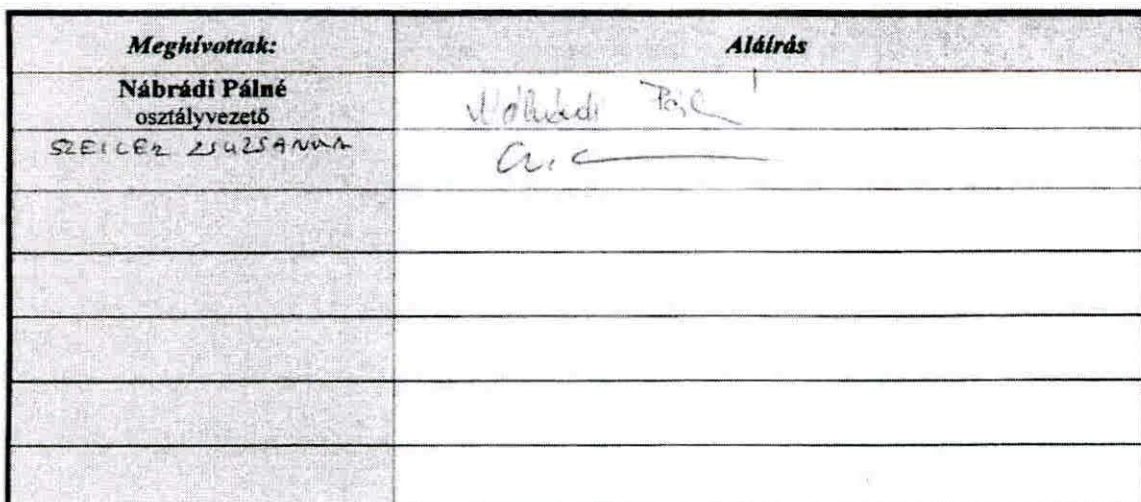 Meghívottak: Aláírás
Nábrádi Pálné
osztályvezető
Nábrádi Pál
ZSUZSANNA